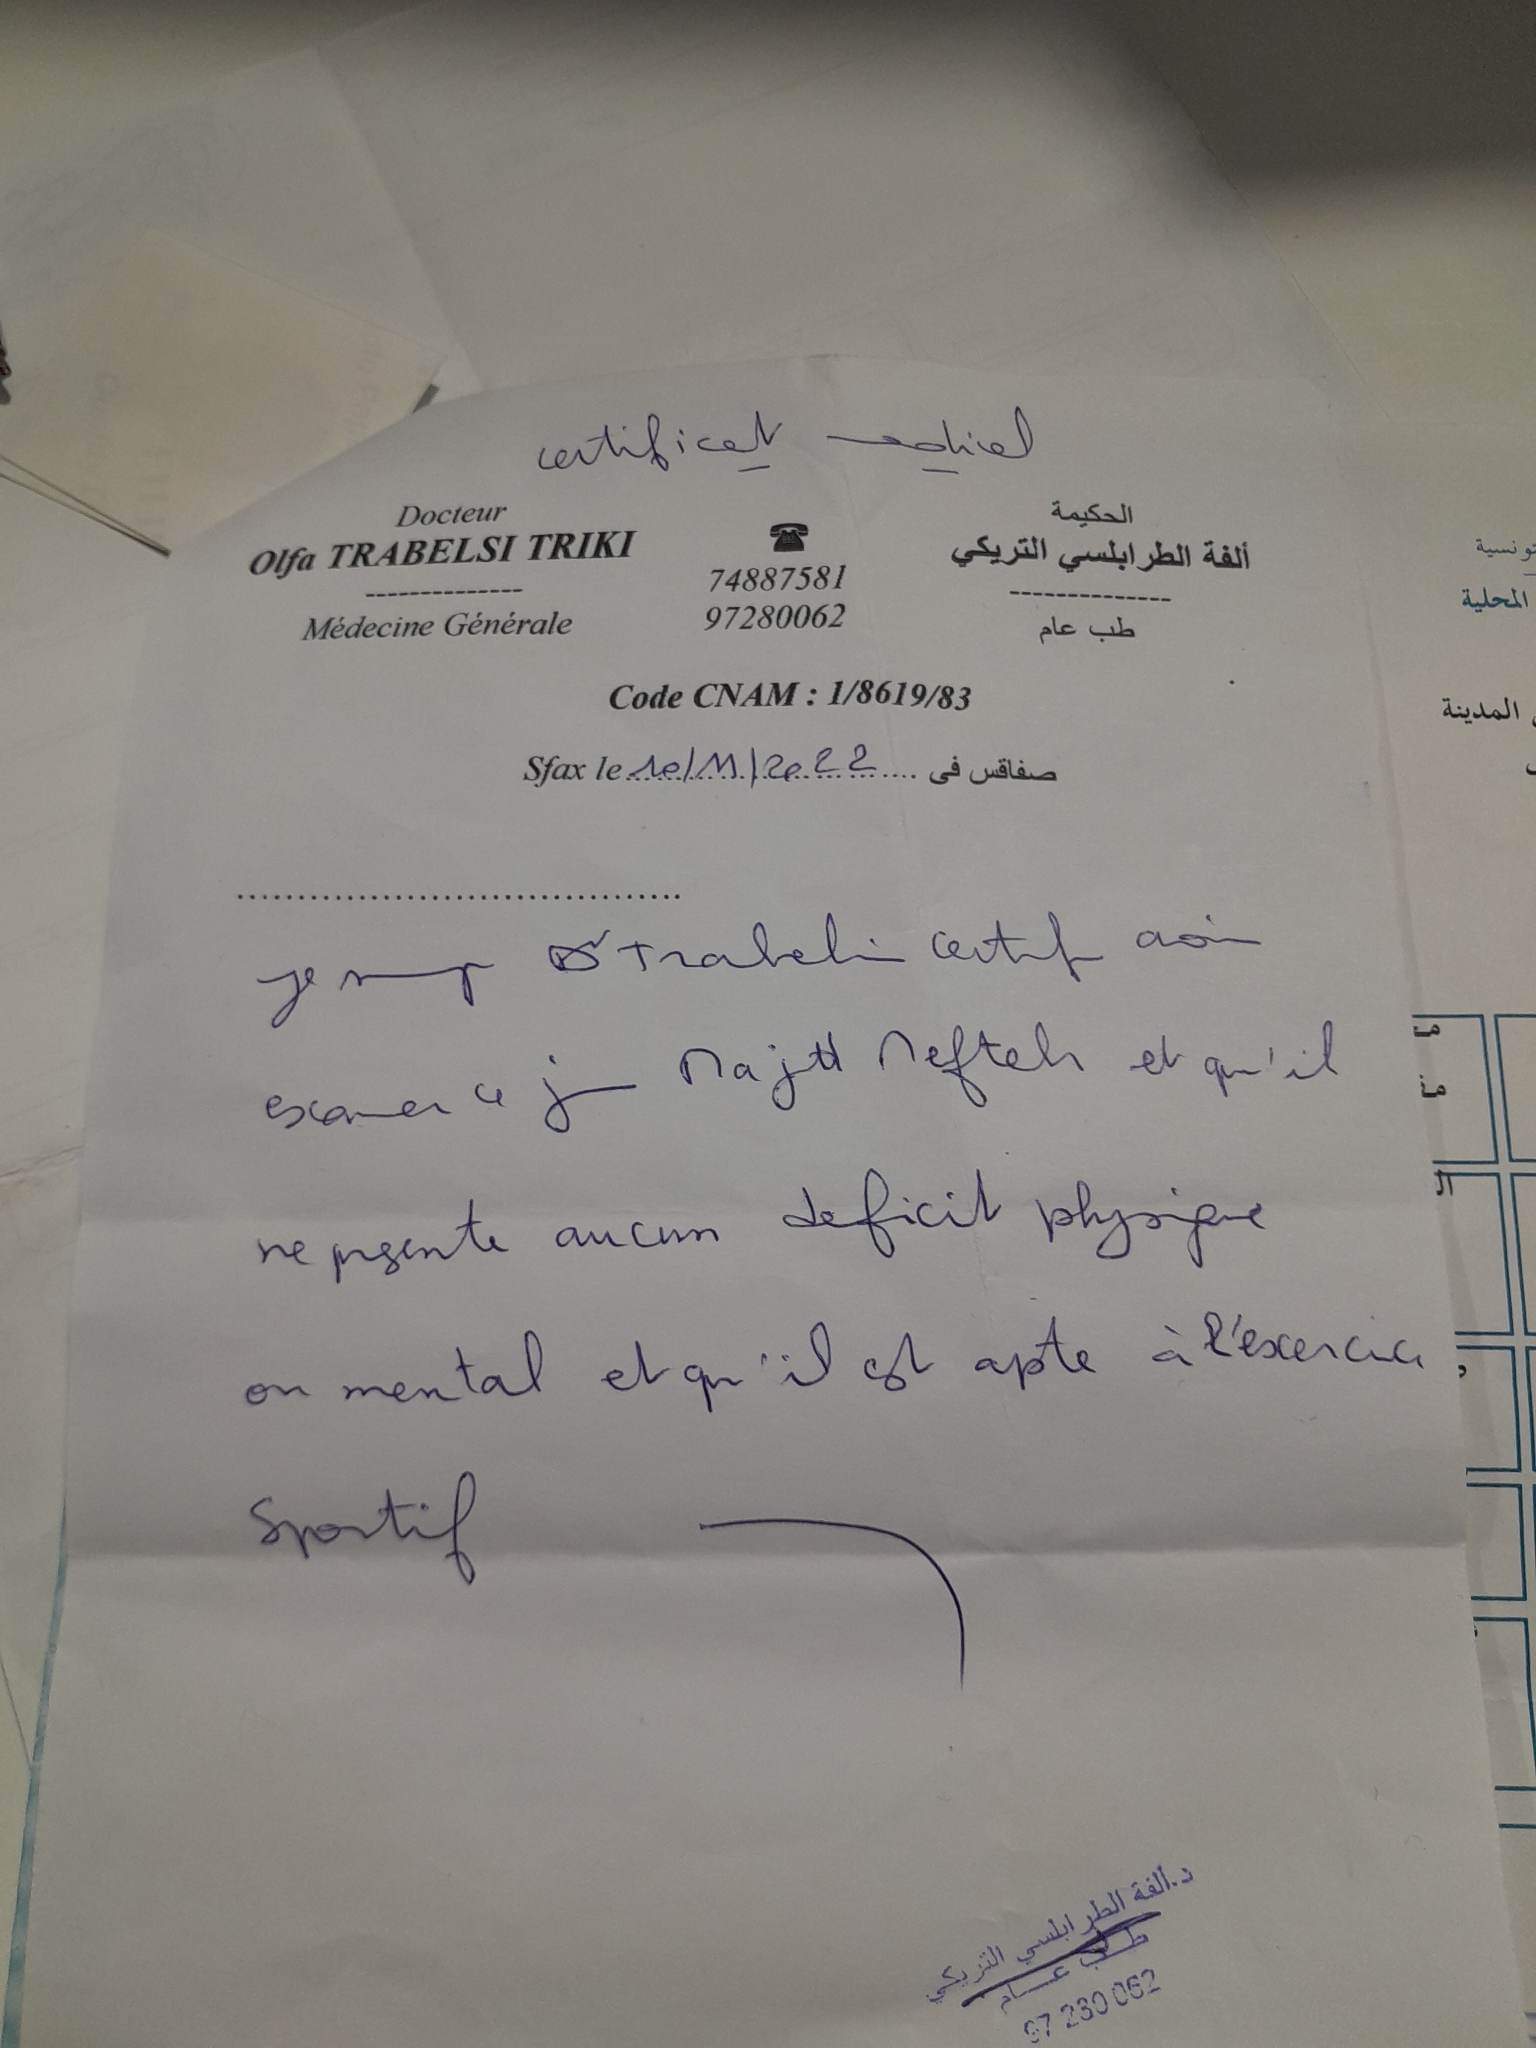 certificat medical
Docteur
Olfa TRABELSI TRIKI
--------------
Médecine Générale
74887581
97280062
الحكيمة
ألفة الطرابلسي التريكي
--------------
طب عام
Code CNAM : 1/8619/83
Sfax le 10/11/2022 صفاقس في
je Dr Trabelsi certif avoir
examer ce jour Majdi Mefteh et qu'il
ne présente aucun deficit physique
ou mental et qu'il est apte à l'exercice
Sportif
د.ألفة الطرابلسي التريكي
طب عام
97 280 062
تونسية
المحلية
المدينة